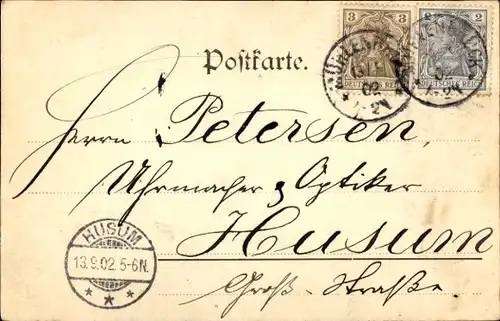 3 2
DEUTSCHES REICH DEUTSCHES REICH
02
Postkarte.
Herrn Petersen,
Uhrmacher & Optiker
Husum
Groß-Straße
HUSUM
13.9.02 5-6N.